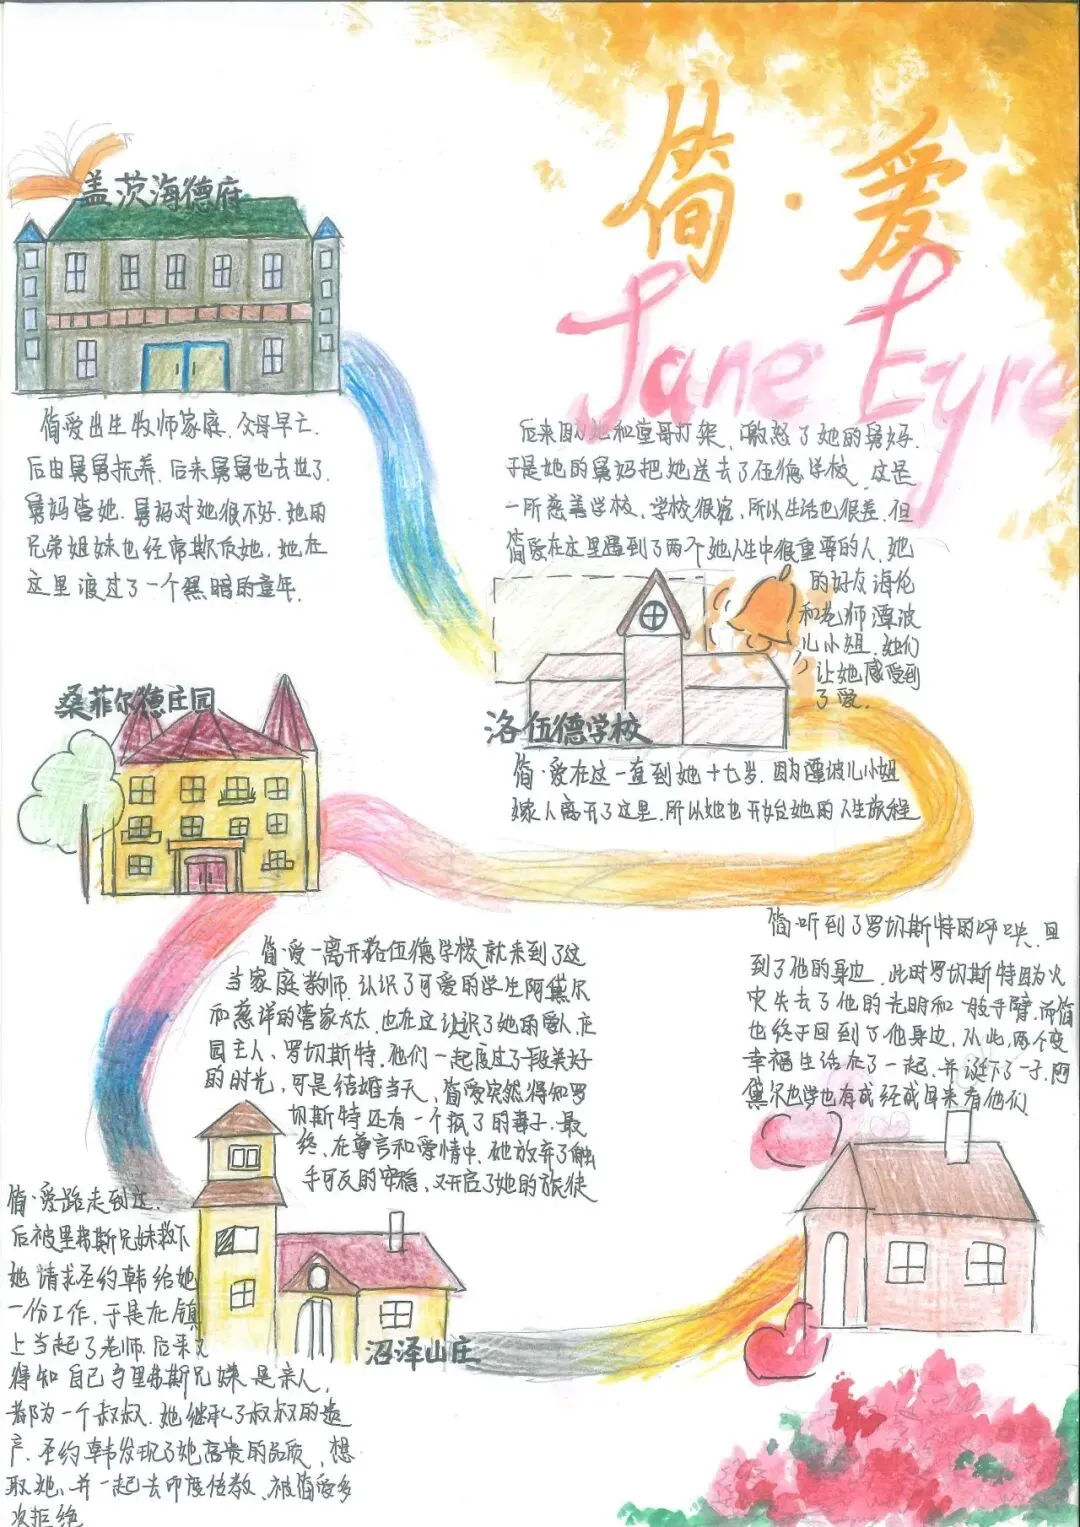 简·爱
Jane Eyre
盖茨海德府
简爱出生牧师家庭.父母早亡.
后由舅舅抚养.后来舅舅也去世了.
舅妈当她.舅妈对她很不好.她的
兄弟姐妹也经常欺负她,她在
这里渡过了一个黑暗的童年.
后来因她和堂哥打架,激怒了她的舅妈.
于是她的舅妈把她送去了伍德学校,这是
一所慈善学校,学校很穷,所以生活也很差.但
简爱在这里遇到了两个她人生中很重要的人,她
的好友海伦
和老师潭波
儿小姐.她们
让她感受到
了爱.
洛伍德学校
简·爱在这一直到她十七岁.因为潭波儿小姐
嫁人离开了这里.所以她也开始她的人生旅程
桑菲尔德庄园
简·爱一离开洛伍德学校就来到了这
当家庭教师.认识了可爱的学生阿黛尔
和慈祥的管家太太.也在这认识了她的爱人庄
园主人、罗切斯特.他们一起度过了段美好
的时光,可是结婚当天,简爱突然得知罗
切斯特还有一个疯了的妻子.最
终,在尊言和爱情中,她放弃了触
手可及的幸福,又开启了她的旅使
简·爱路走到这.
后被里弗斯兄妹救下
她请求圣约韩给她
一份工作,于是在镇
上当起了老师.后来又
得知自己与里弗斯兄妹是亲人,
都为一个叔叔.她继承了叔叔的遗
产.圣约韩发现了她高贵的品质,想
取她,并一起去印度传教,被简爱多
次拒绝
沼泽山庄
简·听到了罗切斯特的呼唤,回
到了他的身边.此时罗切斯特因为火
灾失去了他的光明和一肢手臂,而简
也终于回到了他身边.从此,两个变
幸福生活在了一起,并诞下了一子,阿
黛尔也学也有成经成日来看他们